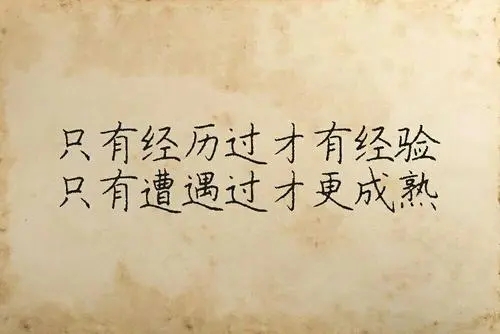 只有经历过才有经验
只有遭遇过才更成熟